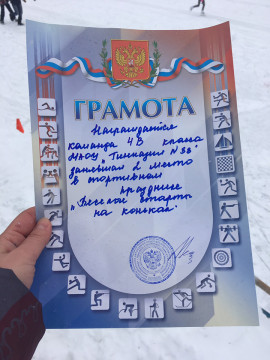 ГРАМОТА
Награждается
команда 4В класса
МАОУ "Гимназия №32"
занявшая 2 место
в спортивном
празднике
"Веселые старты
на коньках".